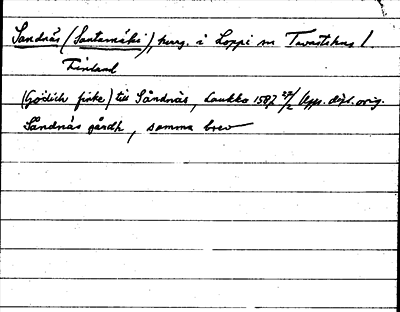 Sandnäs (Santamäki), herrg. i Loppi sn Tavastehus l
Finland
(Gödich finke) till Sandnäs, Laukko 1587 27/2 Upps. dipl. orig.
Sandnäs gårdh, samma brev